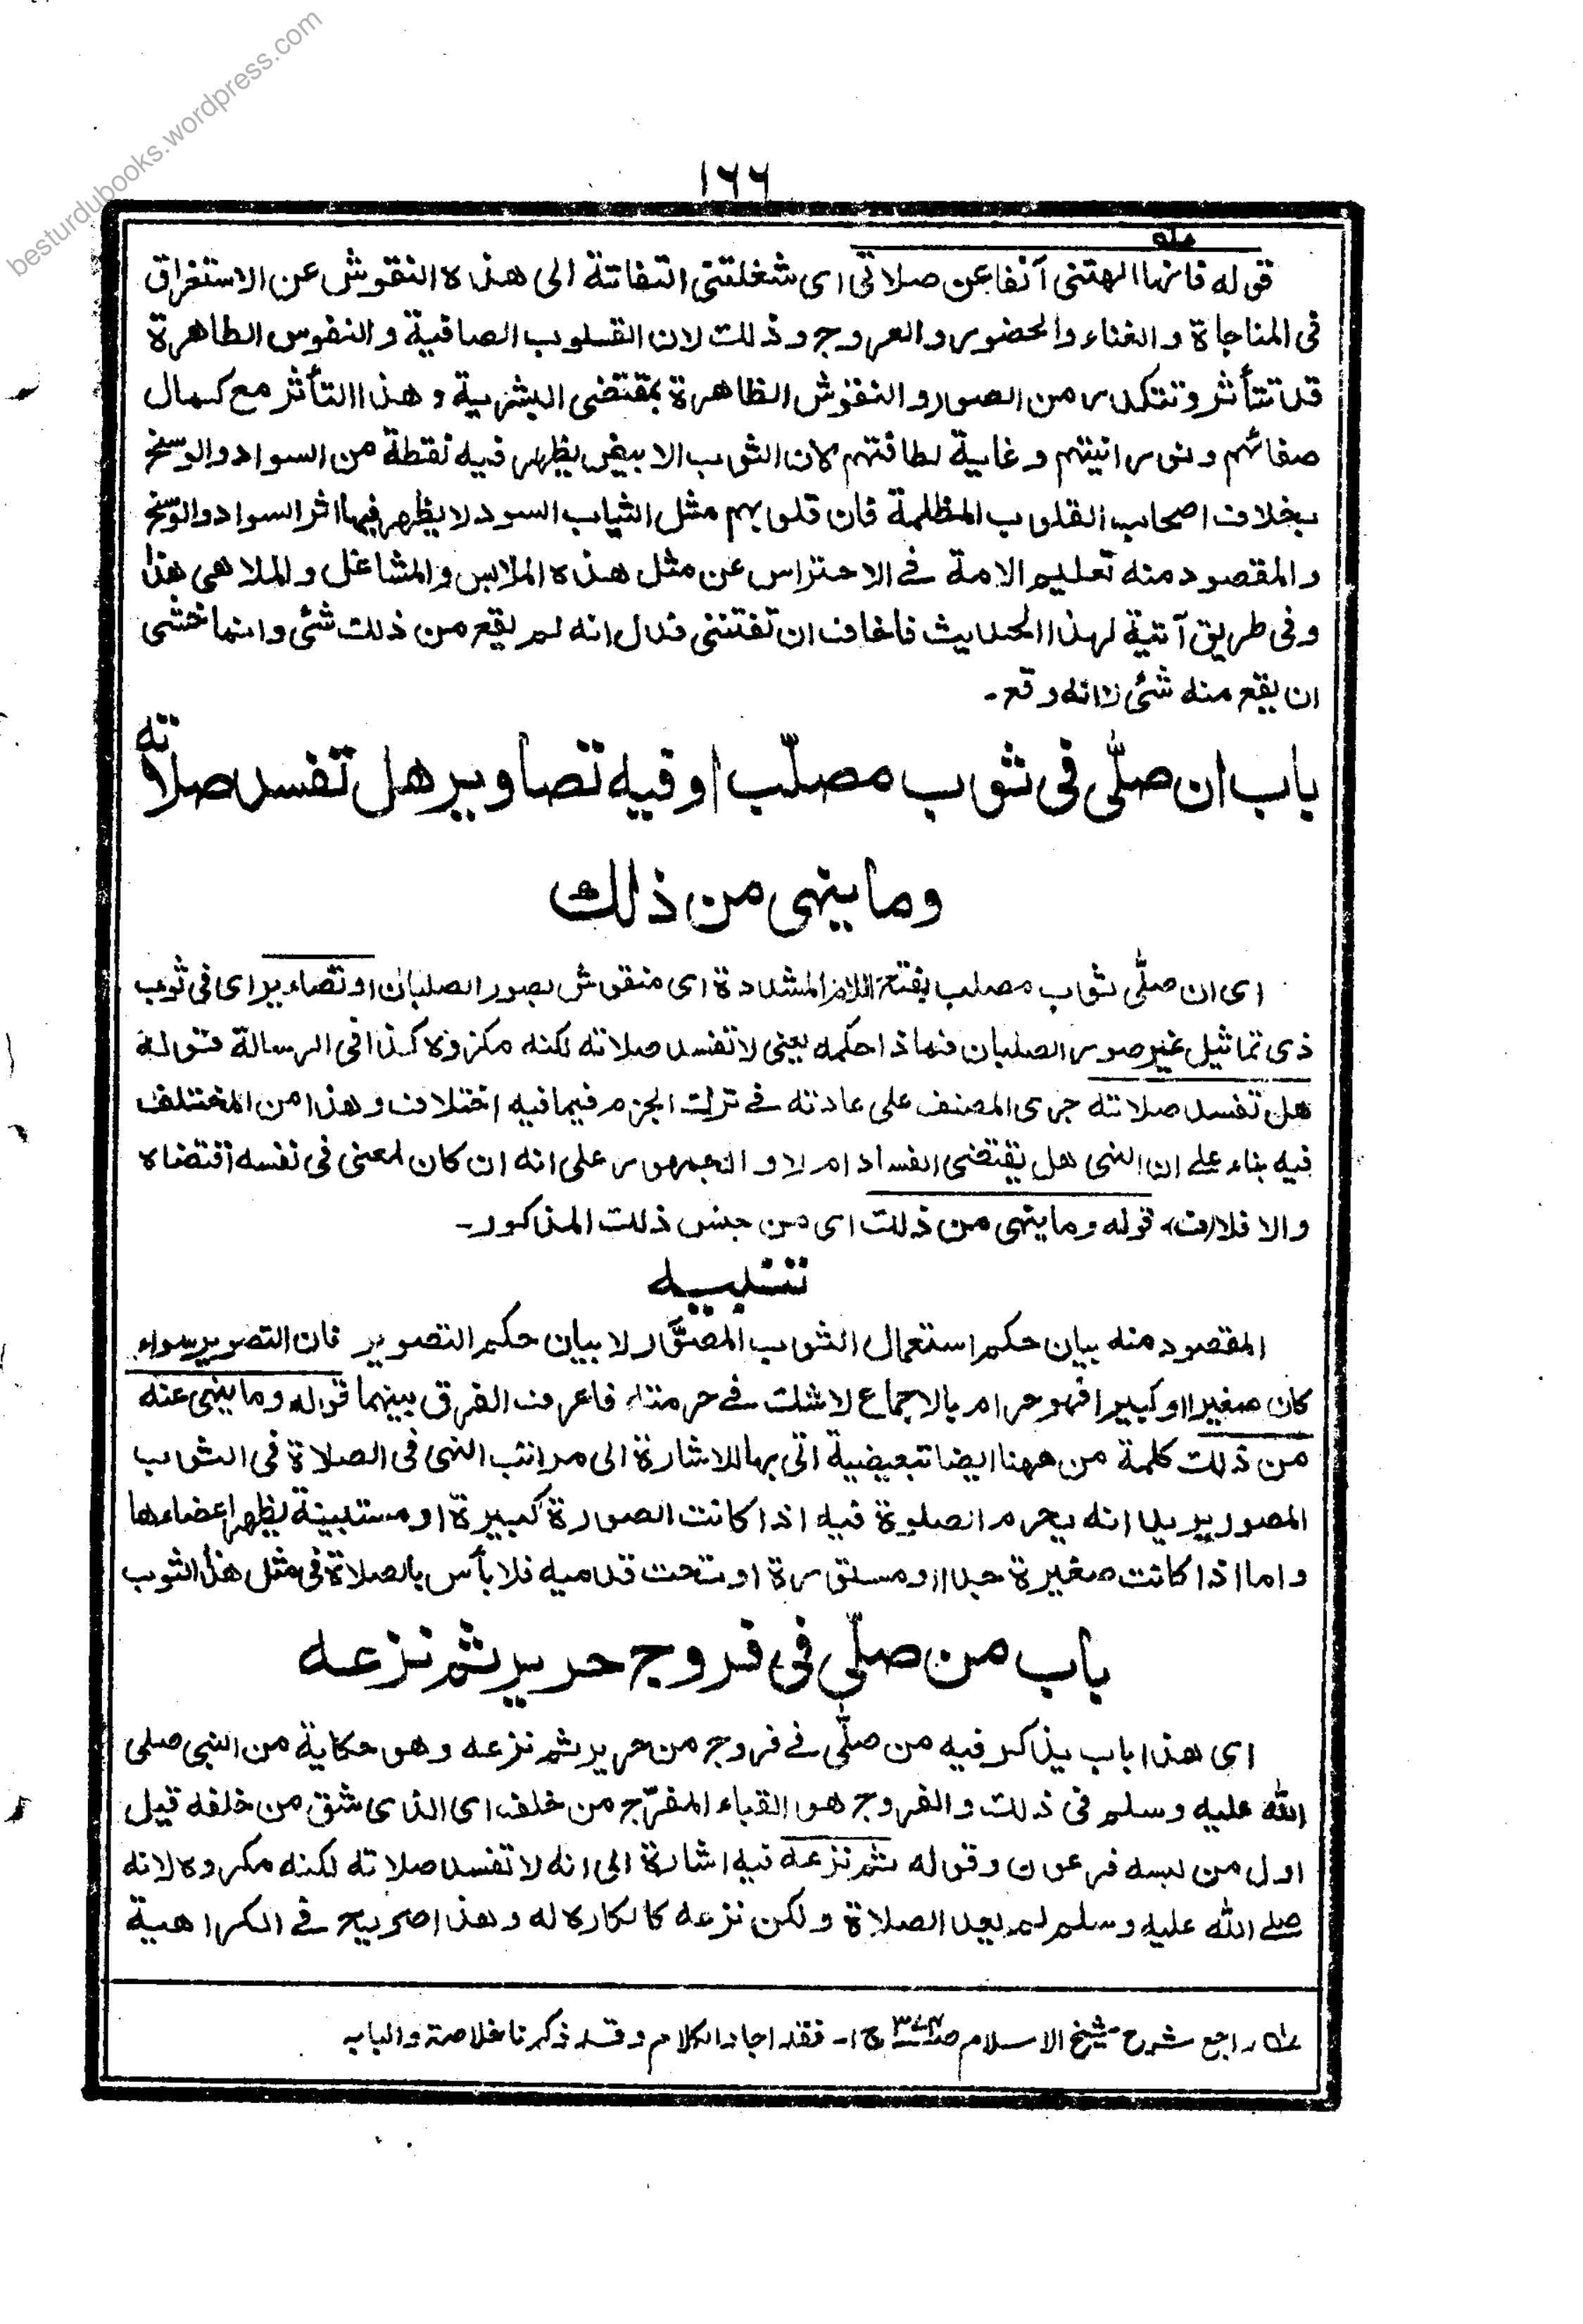 besturdubooks.wordpress.com
١٦٦
قوله فانها الهتنى آنفا عن صلاتى اى شغلتنى التفاتة الى هذه النقوش عن الاستغراق
فى المناجاة و الفناء والحضور والعروج وذلك لان القلوب الصافية و النفوس الطاهرة
قد تتأثر وتتكدر من الصور و النقوش الظاهرة بمقتضى البشرية و هذا التأثر مع كمال
صفائهم ونورانيتهم و غاية لطافتهم لان الثوب الابيض يظهر فيه نقطة من السواد والوسخ
بخلاف اصحاب القلوب المظلمة فان قلوبهم مثل الثياب السود لا يظهر فيها اثر السواد والوسخ
والمقصود منه تعليم الامة فے الاحتراس عن مثل هذه الملابس والمشاغل والملاهى هذا
وفى طريق آتية لهذا الحديث فاخاف ان تفتننى فدل انه لم يقع من ذلك شئى وانما خشى
ان يقع منه شئى لا انه وقع ـ
باب ان صلّى فى ثوب مصلّب او فيه تصاوير هل تفسد صلاته
وما ينهى من ذلك
اى ان صلّى بثوب مصلب بفتح اللام المشددة اى منقوش بصور الصلبان او تصاوير اى فى ثوب
ذى تماثيل غير صور الصلبان فماذا حكمه يعنى لا تفسد صلاته لكنه مكروه كذا فى الرسالة قوله
هل تفسد صلاته جرى المصنف على عادته فے ترك الجزم فيما فيه اختلاف وهذا من المختلف
فيه بناء على ان النهى هل يقتضى الفساد ام لا و الجمهور على انه ان كان لمعنى فى نفسه اقتضاه
والا فلا (ف) قوله وما ينهى من ذلك اى من جنس ذلك المذكور ـ
تنبيه
المقصود منه بيان حكم استعمال الثوب المصوَّر لا بيان حكم التصوير فان التصوير سواء
كان صغيرا او كبيرا فهو حرام بالاجماع لا شك فے حرمته فاعرف الفرق بينهما قوله وما ينهى عنه
من ذلك كلمة من ههنا ايضا تبعيضية اتى بها للاشارة الى مراتب النهى فى الصلاة فى الثوب
المصور يريد انه يحرم الصلوة فيه اذا كانت الصورة كبيرة او مستبينة يظهر اعضاءها
واما اذا كانت صغيرة جدا او مستورة او تحت قدميه فلا بأس بالصلاة فى مثل هذا الثوب
باب من صلّى فى فروج حرير ثم نزعه
اى هذا باب يذكر فيه من صلّى فے فروج من حرير ثم نزعه وهو حكاية من النبى صلى
الله عليه وسلم فى ذلك والفروج هو القباء المفرّج من خلف اى الذى شق من خلفه قيل
اول من لبسه فرعون وقوله ثم نزعه فيه اشارة الى انه لا تفسد صلاته لكنه مكروه لانه
صلے الله عليه وسلم لم يعد الصلاة ولكن نزعه كالكاره له وهذا صريح فے الكراهية
راجع شرح شيخ الاسلام ج١ـ فقد اجاد الكلام وقد ذكرنا خلاصته ولبابه